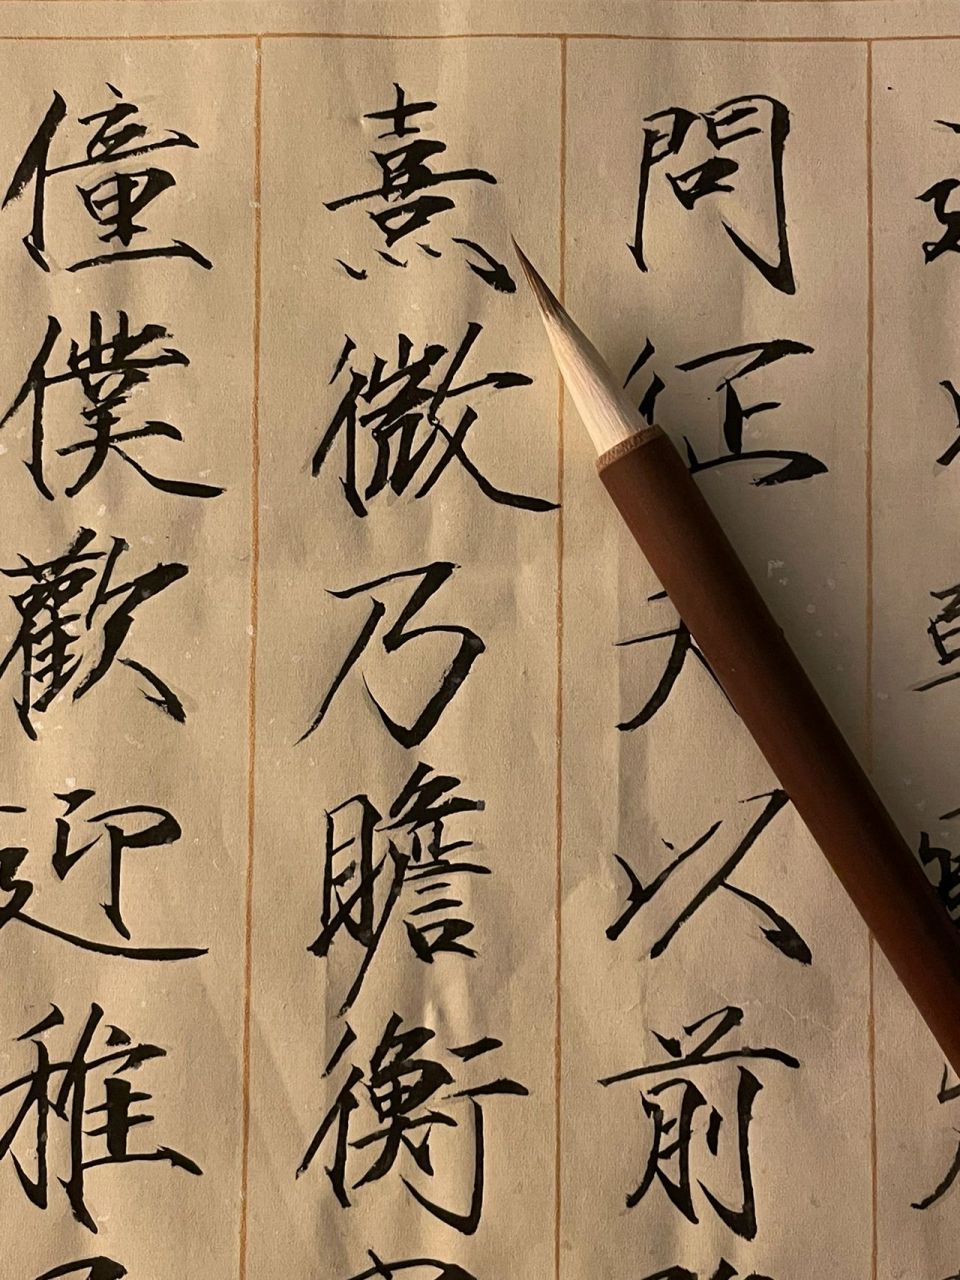 問征夫以前
熹微乃瞻衡
僮僕歡迎稚